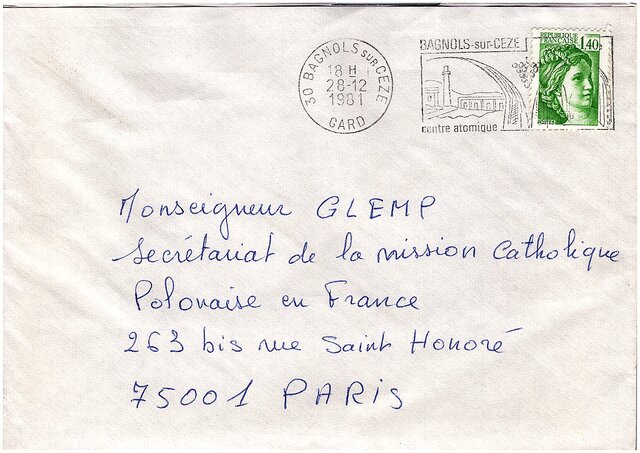 30 BAGNOLS SUR CEZE
18 H
28-12
1981
GARD
BAGNOLS-sur-CEZE
centre atomique
REPUBLIQUE
FRANCAISE
1,40
Monseigneur GLEMP
Secrétariat de la mission Catholique
Polonaise en France
263 bis rue Saint Honoré
75001 PARIS